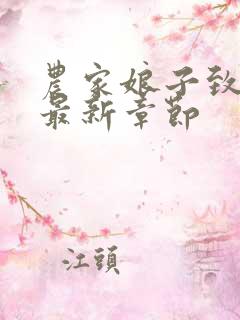 農家娘子致
最新章節
江頭